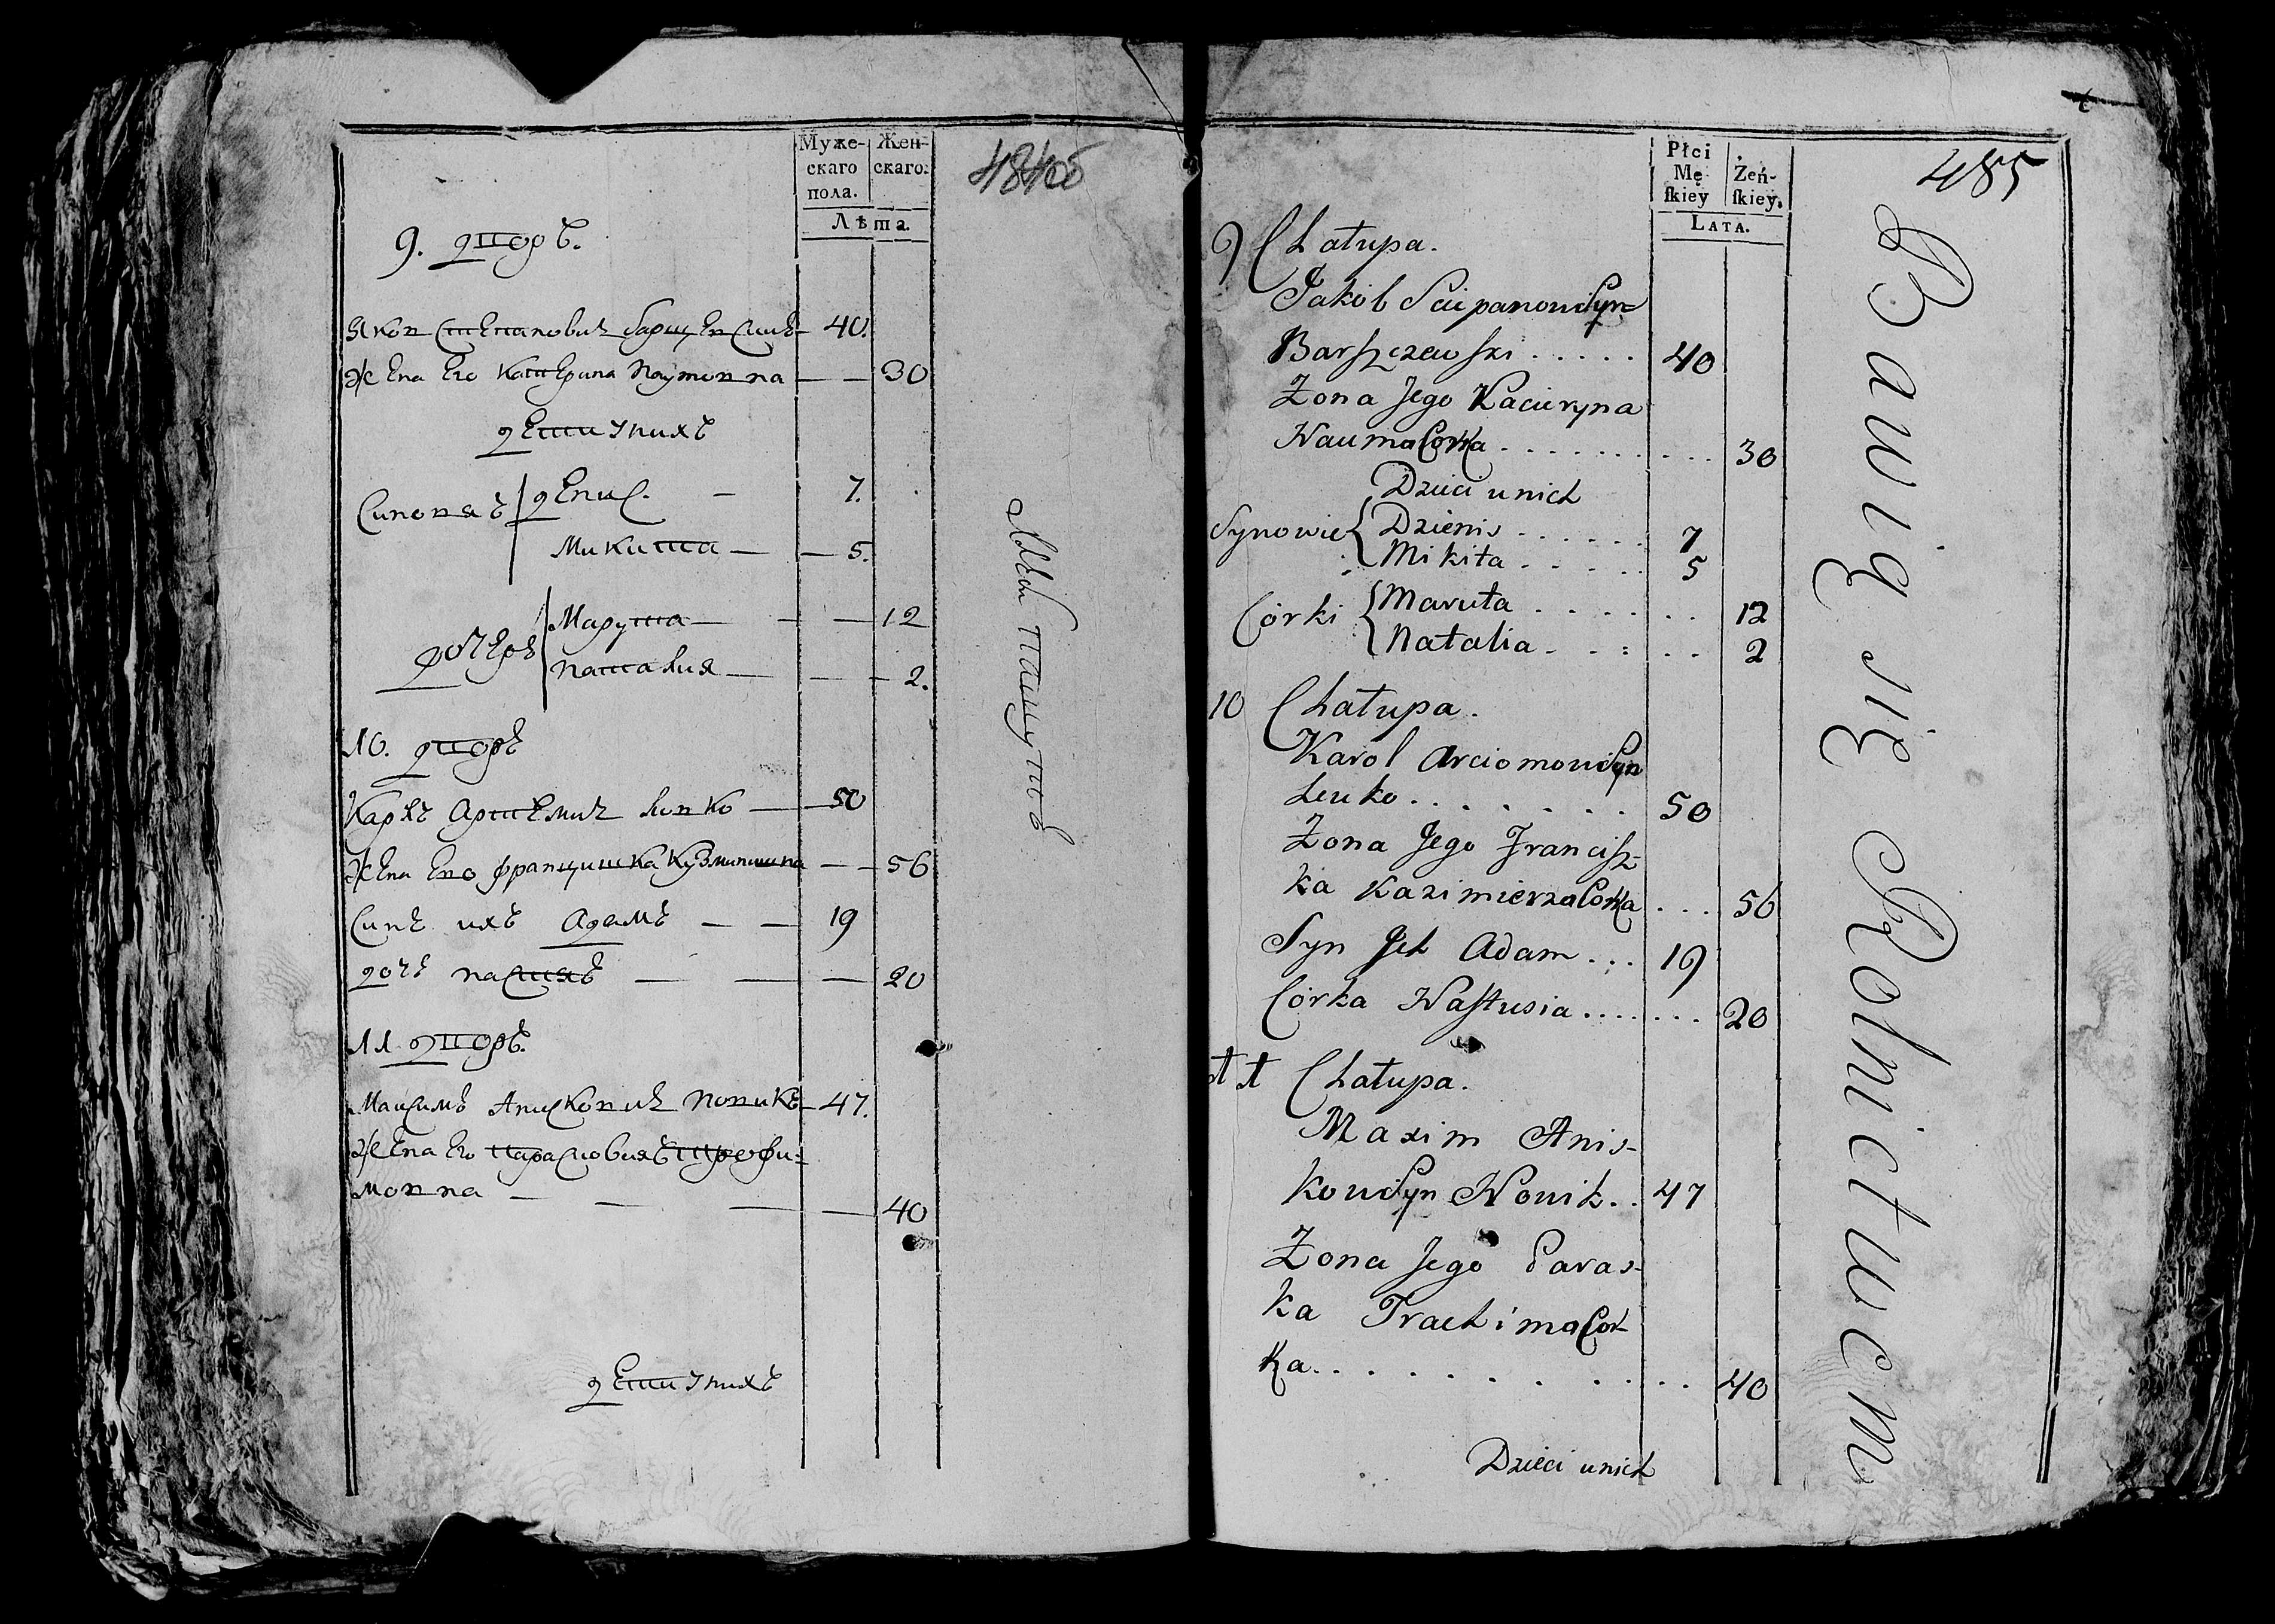 Муже-
скаго
пола.
Жен-
скаго.
Лѣта.
484об
9. дворъ.
Яков Степанович барщевски 40.
Жена Его Катерина Наумовна 30
дети у них
Сыновя
денис 7.
Микита 5.
дочере
Марута 12
наталия 2.
10. дворъ
Карлъ Артемич левко 50
Жена Его францишка 56
Синъ ихъ Адамъ 19
дочъ настя 20
11 дворъ.
Максимъ Анисковичъ новикъ 47.
Жена Его
40
дети у них
Płci
Mę
skiey
Żeń-
skiey.
LATA.
485
9 Chałupa.
Jakób Sciepanow Syn
Barszczewski 40
Zona Jego Kacieryna
Nauma Corka 30
Dzieci u nich
Synowie
Dzienis 7
Mikita 5
Córki
Maruta 12
Natalia 2
10 Chałupa.
Karol Arciomow Syn
Lewko 50
Zona Jego Francisz-
ka Kazimierza Corka 56
Syn Jch Adam 19
Córka Nastusia 20
11 Chałupa.
Maxim Anis-
kow Syn Nowik 47
Zona Jego Paras-
ka Trachima Cor-
ka 40
Dzieci u nich
Bawią się Rolnictwem